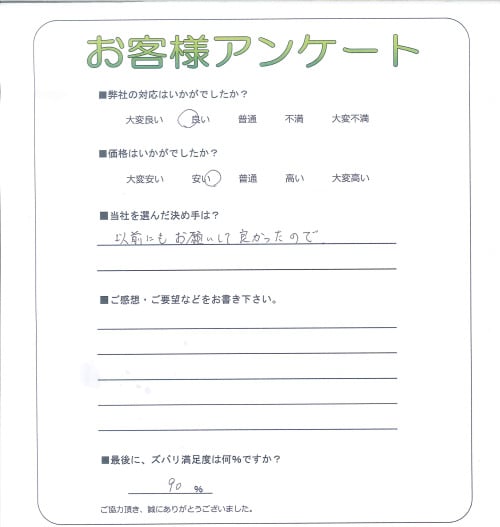 お客様アンケート
■弊社の対応はいかがでしたか?
大変良い 良い 普通 不満 大変不満
■価格はいかがでしたか?
大変安い 安い 普通 高い 大変高い
■当社を選んだ決め手は?
以前にもお願いして良かったので
■ご感想・ご要望などをお書き下さい。
■最後に、ズバリ満足度は何%ですか?
90 %
ご協力頂き、誠にありがとうございました。